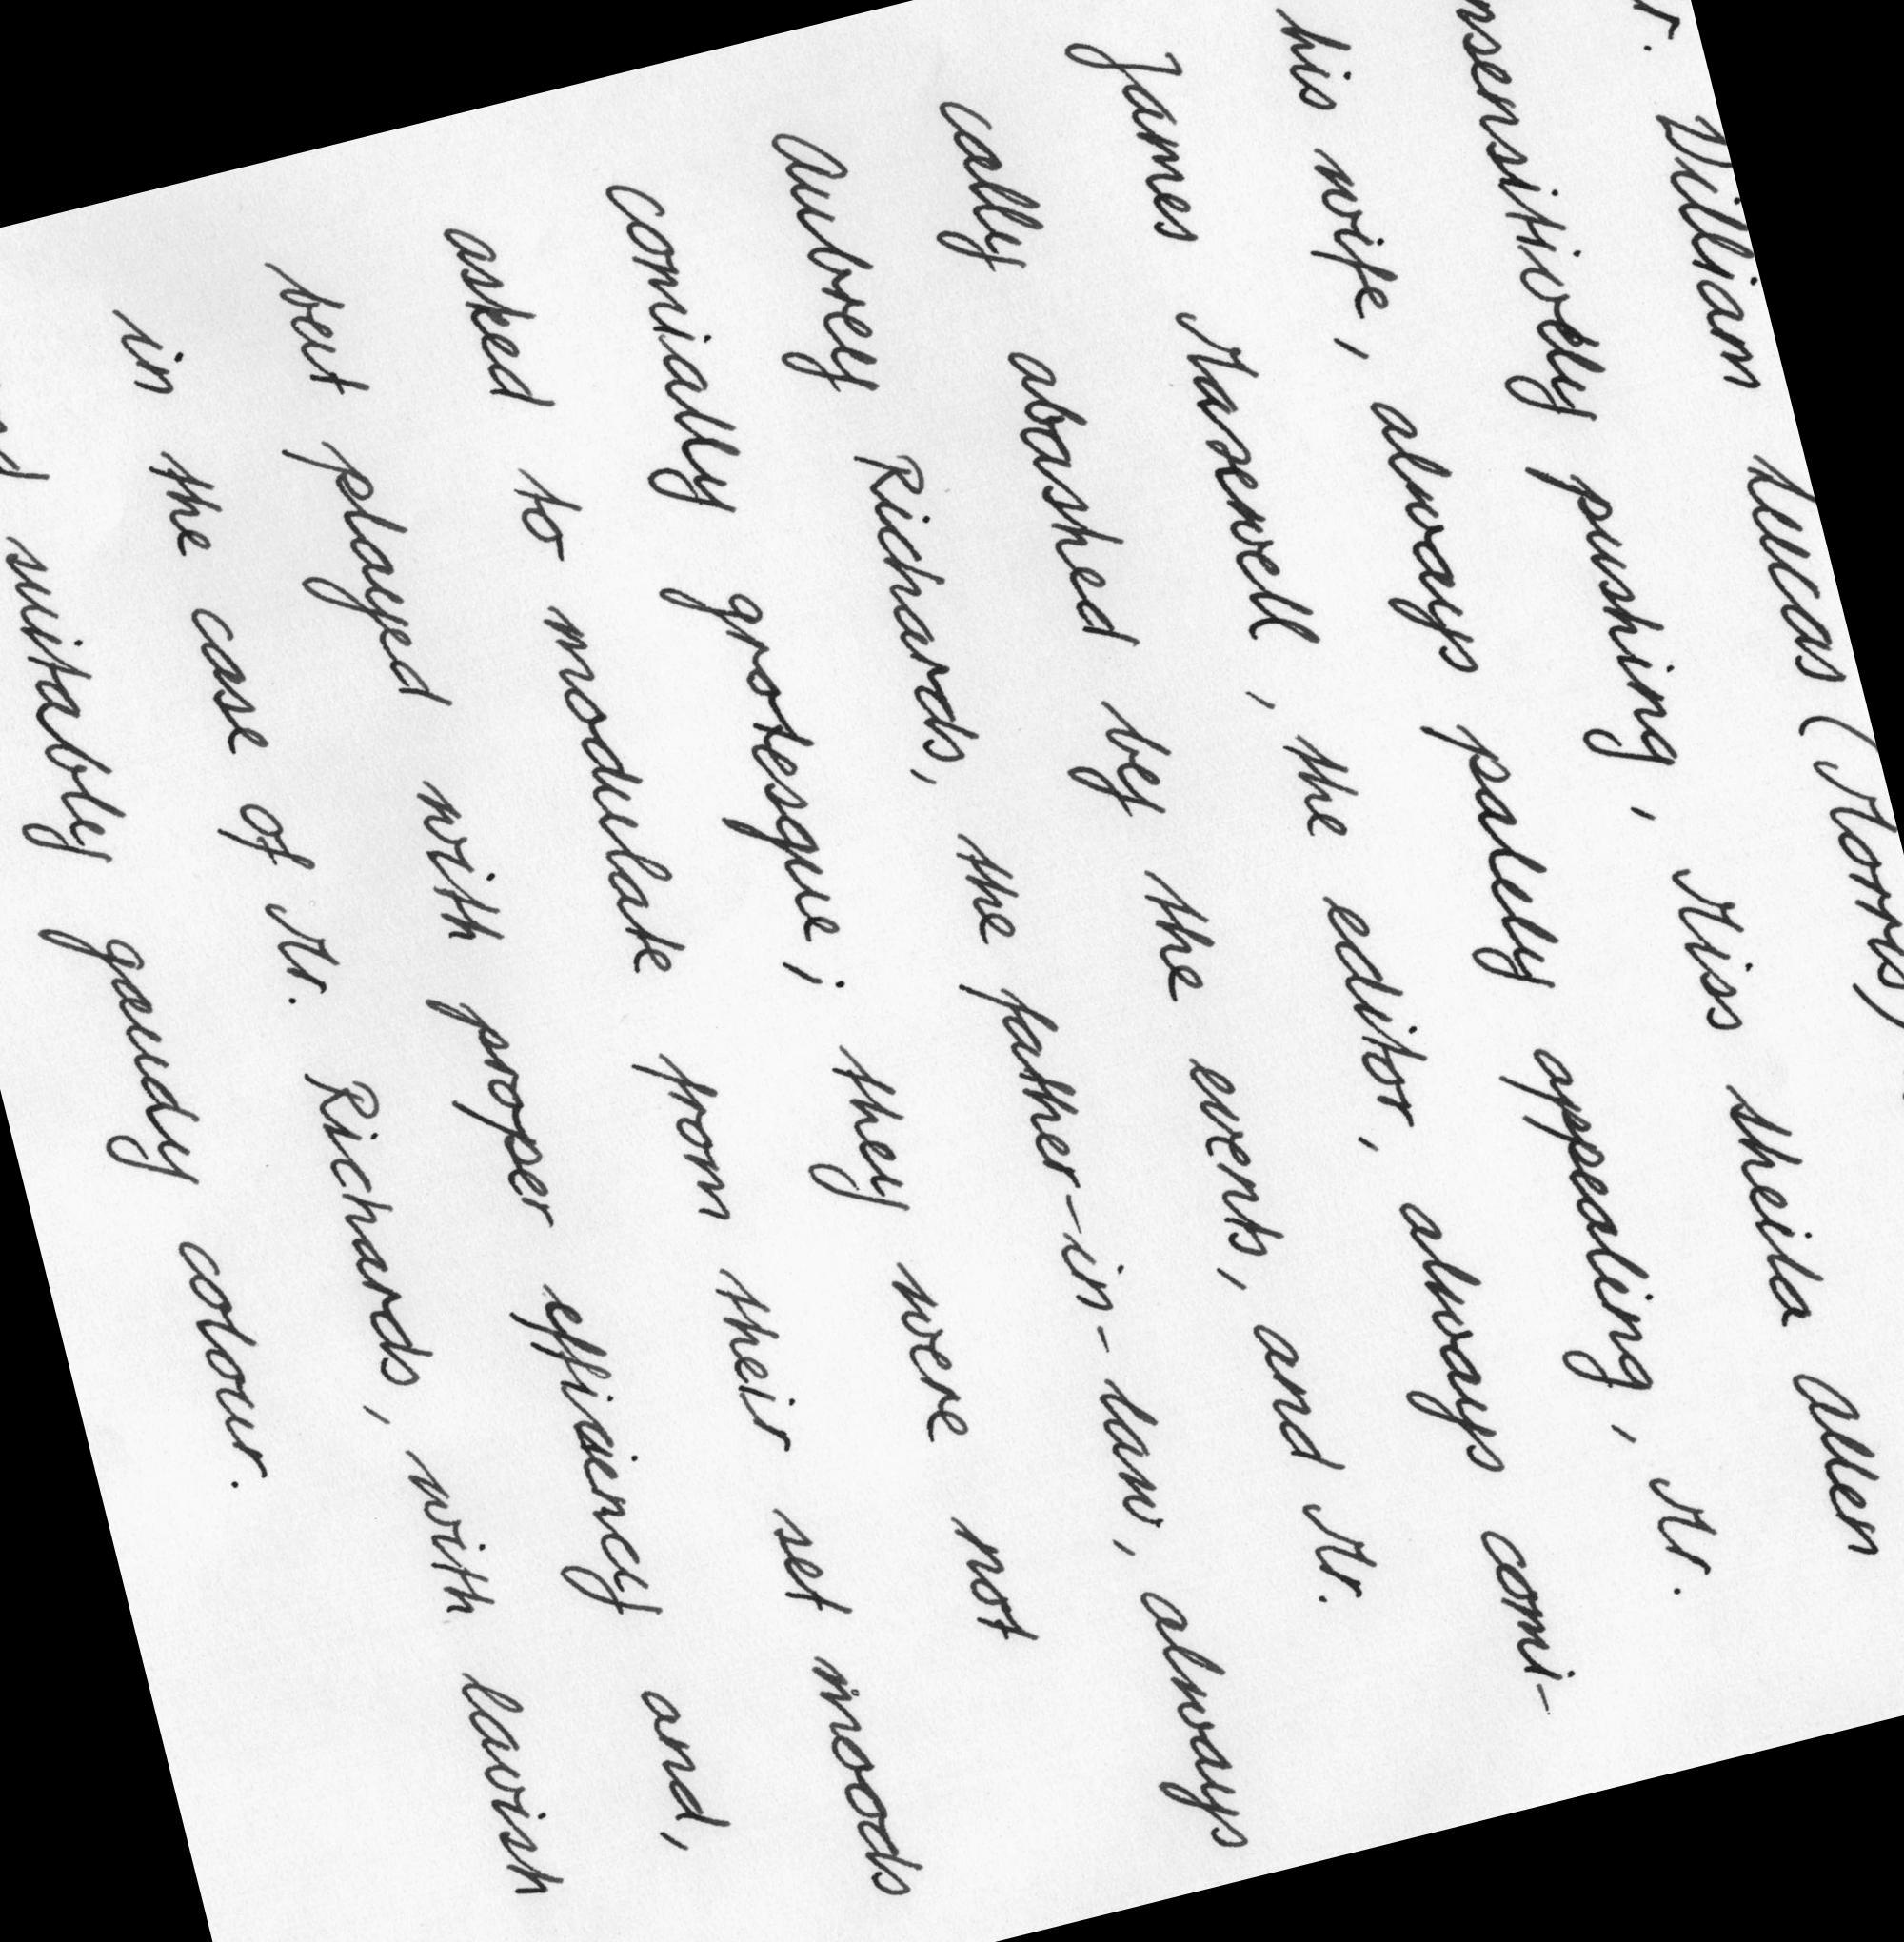 William Lucas (Morris)
pushing, Miss Sheila Allen
his wife, always palely appealing, Mr.
James Maxwell, the editor, always comi-
cally abashed by the events, and Mr.
Aubrey Richards, the father-in-law, always
comially grotesque; they were not
asked to modulate from their set moods
but played with proper efficiency and,
in the case of Mr. Richards, with lavish
suitably gaudy colour.